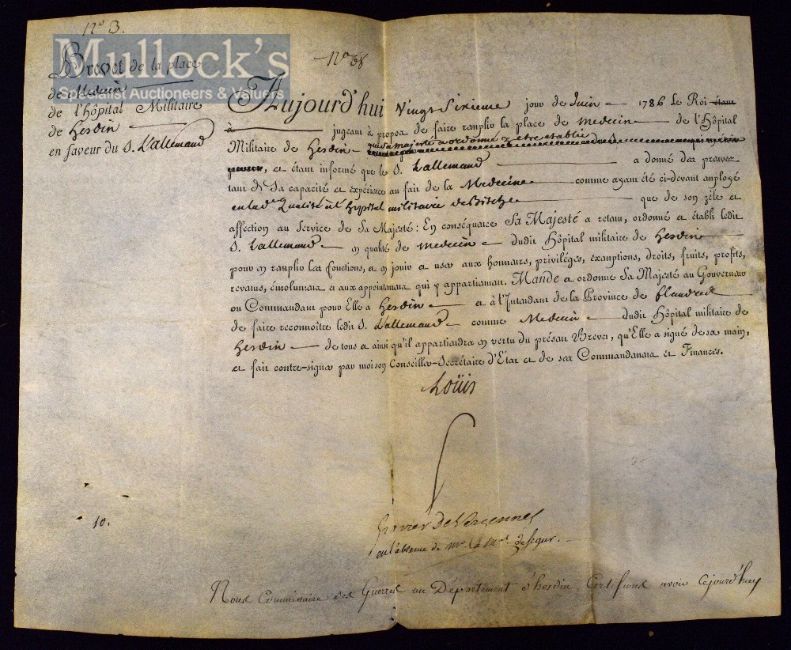 nº 3.
Mullock's
Specialist Auctioneers & Valuers
Brevet de la place
de Medecin
de l'hôpital Militaire
de hesdin
en faveur du S. Lallemand
nº 68
Aujourd'hui Vingt Sixieme jour de Juin 1786 Le Roi étant
à jugeant à propos de faire remplir la place de medecin de l'Hôpital
Militaire de hesdin
et étant informé que le S. Lallemand a donné des preuves
tant de Sa capacité et expérience au fait de la Medecine comme ayant été ci-devant employé
en lad.e Qualité à l'hôpital militaire de Bitche que de son zèle et
affection au Service de Sa Majesté: En conséquence Sa Majesté a retenu, ordonné et établi ledit
S. Lallemand en qualité de medecin dudit Hôpital militaire de hesdin
pour en remplir les fonctions, en jouir et user aux honneurs, privilèges, exemptions, droits, fruits, profits,
revenus, émolumens et aux appointemens qui y appartiennent. Mande et ordonne Sa Majesté au Gouverneur
ou Commandant pour Elle à hesdin et à l'Intendant de la Province de flandres
de faire reconnoître ledit S. Lallemand comme Medecin dudit Hôpital militaire de
hesdin de tous et ainsi qu'il appartiendra en vertu du présent Brevet, qu'Elle a signé de sa main,
et fait contre-signer par moi son Conseiller-Secrétaire d'Etat et de ses Commandemens et Finances.
Louis
Gravier De Vergennes
en l'absence de Mr. le Mal. de Segur.
10.
Nous Commissaire des Guerres au Département d'hesdin Certifions avoir cejourd'huy